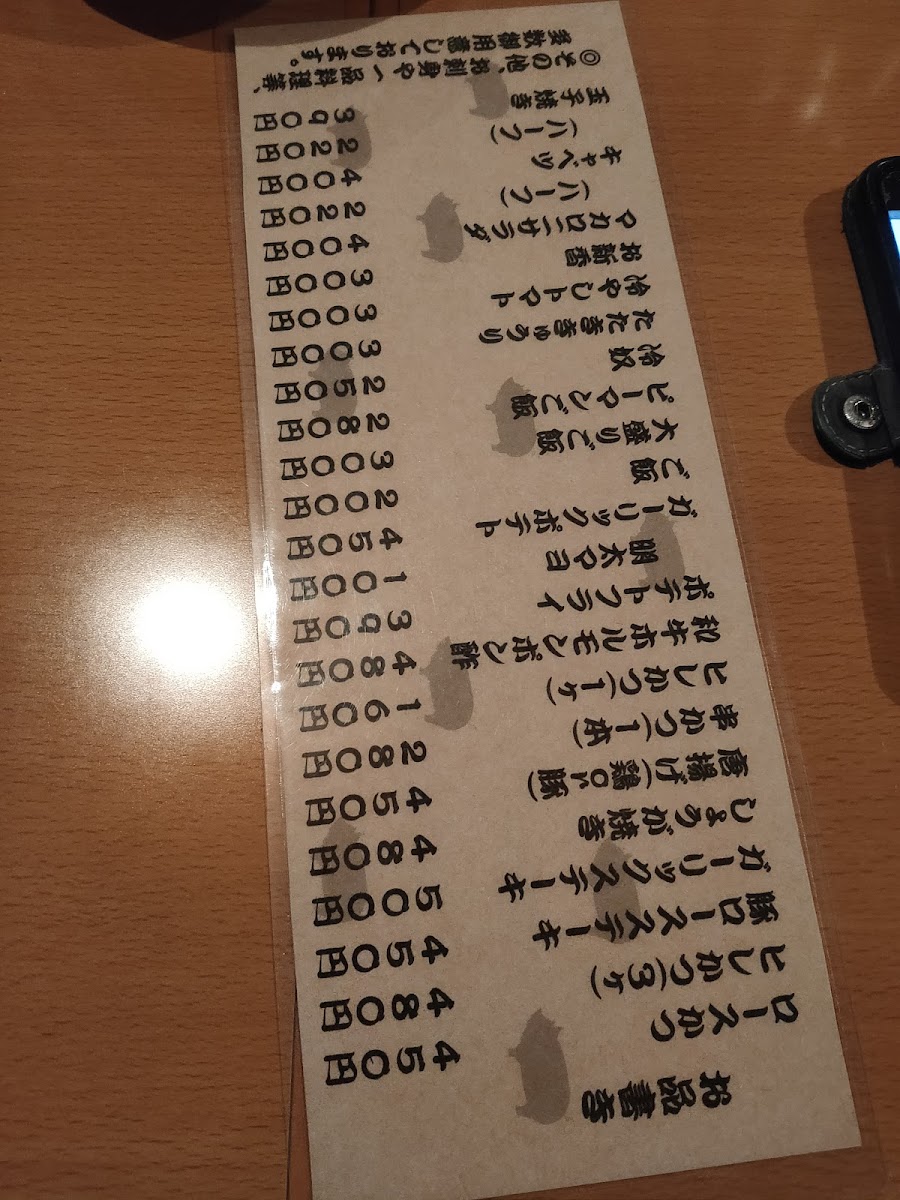 お品書き
ロースかつ 450円
ヒレかつ(3ヶ) 480円
豚ロースステーキ 450円
ガーリックステーキ 500円
しょうが焼き 480円
唐揚げ(鶏or豚) 450円
串かつ(1本) 280円
ヒレかつ(1ヶ) 160円
和牛ホルモンポン酢 480円
ポテトフライ 390円
明太マヨ 100円
ガーリックポテト 450円
ご飯 200円
大盛りご飯 300円
ピーマンご飯 280円
冷奴 250円
たたききゅうり 300円
冷やしトマト 300円
お新香 300円
マカロニサラダ 400円
(ハーフ) 220円
キャベツ 400円
(ハーフ) 220円
玉子焼き 390円
◎その他、お刺身や一品料理等、
多数御用意しております。